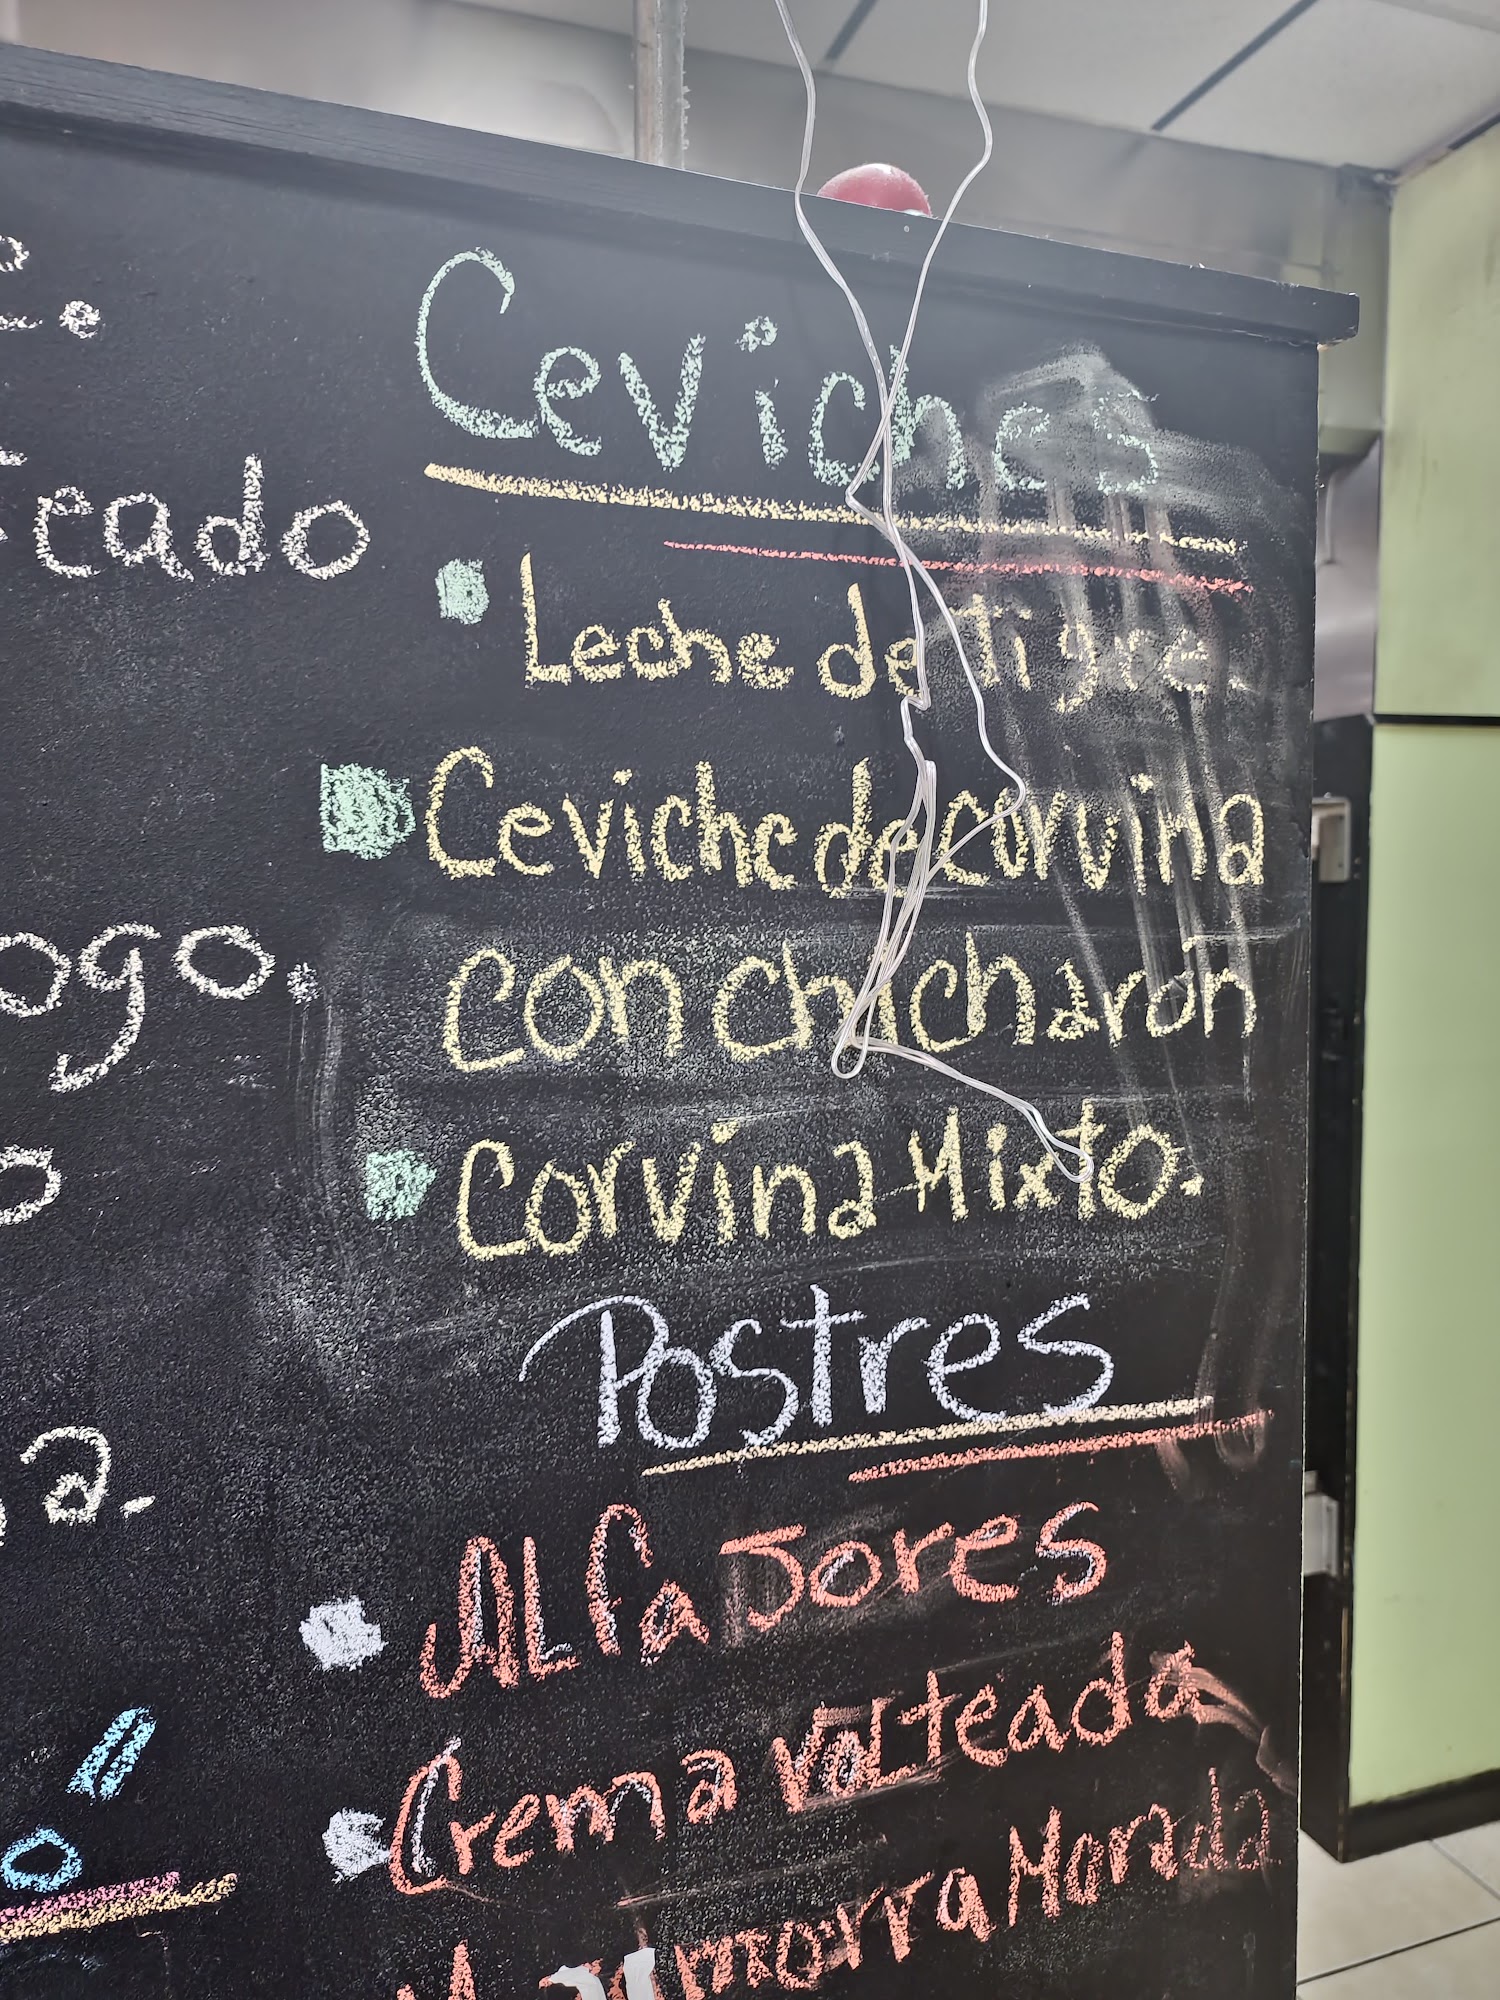 eado
ogo.
a.
o
Ceviches
Leche de tigre.
Ceviche de corvina
con chicharon
Corvina Mixto.
Postres
ALfaJores
Crema volteada
Morada